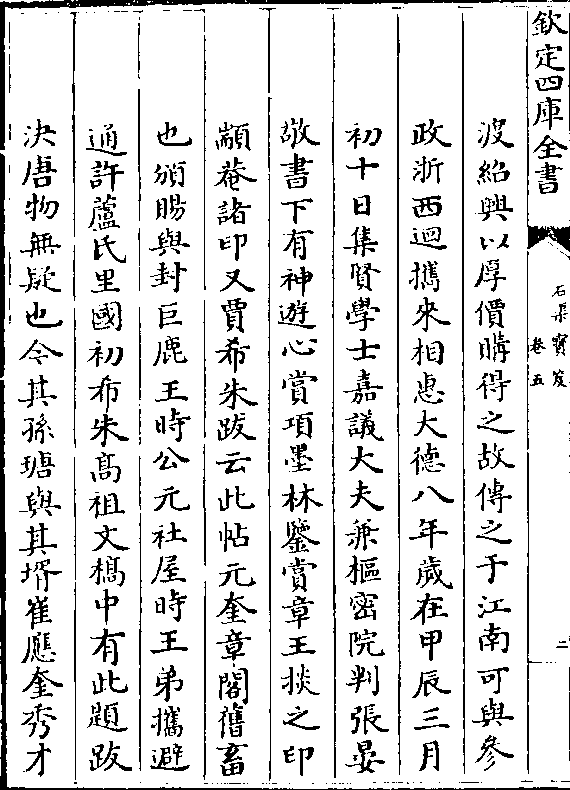 欽定四庫全書
石渠寳笈
卷五
二
波紹興以厚價購得之故傳之于江南可與參
政浙西迴攜來相惠大德八年歲在甲辰三月
初十日集賢學士嘉議大夫兼樞密院判張晏
敬書下有神遊心賞項墨林鑒賞章王掞之印
顓菴諸印又賈希朱跋云此帖元奎章閣舊畜
也頒賜與封巨鹿王時公元社屋時王弟攜避
通許蘆氏里國初布朱髙祖文檇中有此題跋
決唐物無疑也令其孫瑭與其壻崔應奎秀才